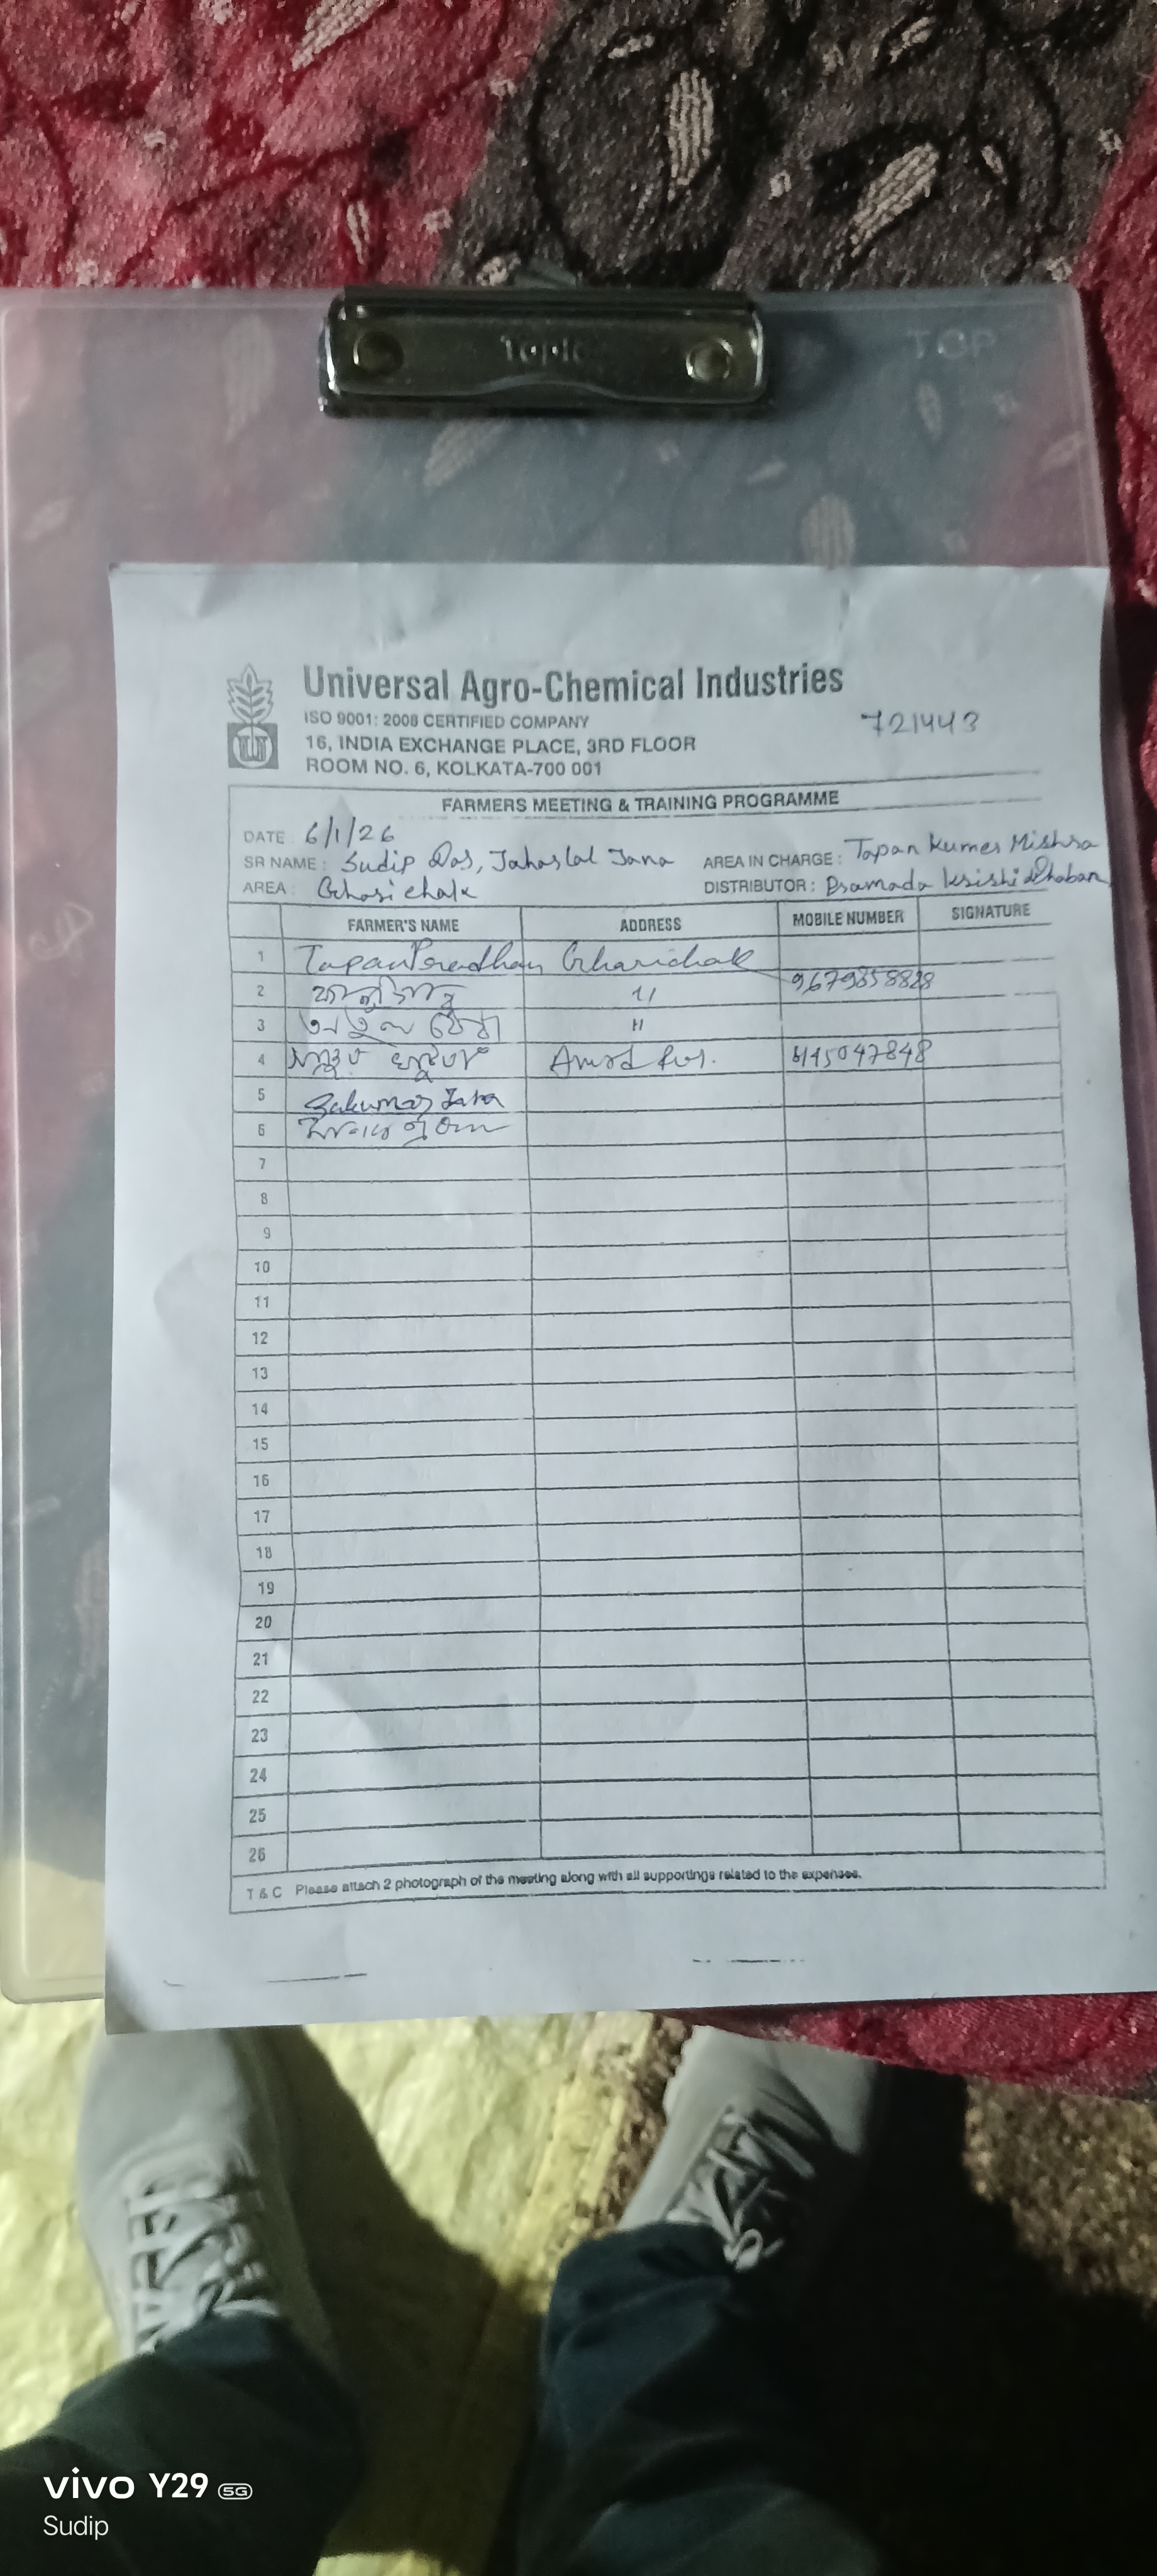 Topic
TOP
Universal Agro-Chemical Industries
ISO 9001: 2008 CERTIFIED COMPANY
721443
16, INDIA EXCHANGE PLACE, 3RD FLOOR
ROOM NO. 6, KOLKATA-700 001
FARMERS MEETING & TRAINING PROGRAMME
DATE: 6/1/26
SR NAME: Sudip Das, Jaharlal Jana AREA IN CHARGE: Tapan Kumar Mishra
AREA: DISTRIBUTOR: Pramada Krishi
FARMER'S NAME ADDRESS MOBILE NUMBER SIGNATURE
1 Tapan Pradhan
2 9679858828
3 "
4
5 Sukumar Jana
6
7
8
9
10
11
12
13
14
15
16
17
18
19
20
21
22
23
24
25
26
T & C Please attach 2 photograph of the meeting along with all supportings related to the expenses.
vivo Y29 5G
Sudip